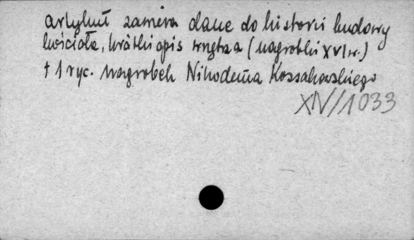 artykuł zawiera dane do historii budowy
kościoła, krótki opis wnętrza (nagrobki XVI w.)
+ 1 ryc. nagrobek Nikodema Kossakowskiego
XIV/1033